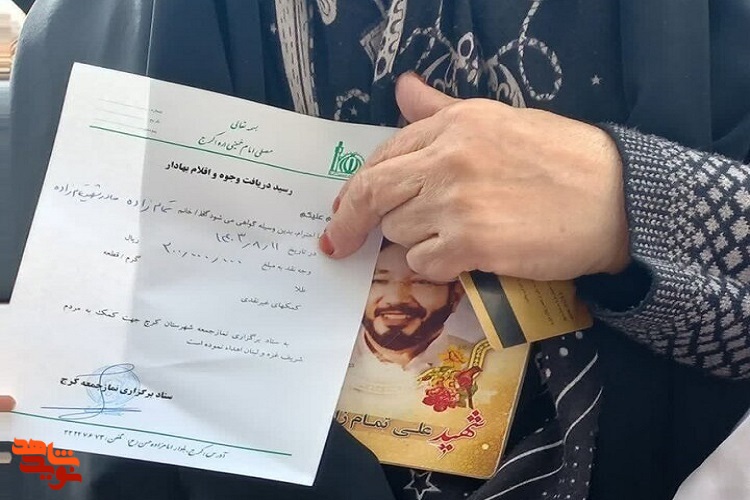 بسمه تعالی
مصلی امام خمینی (ره) کرج
رسید دریافت وجوه و اقلام بهادار
علیکم
احترام، بدین وسیله گواهی می شود آقا/خانم تمام زاده مادر شهید تمام زاده
در تاریخ ۱۴۰۳/۸/۱۱
وجه نقد به مبلغ ۳۰۰/۰۰۰/۰۰۰ ریال
طلا گرم/قطعه
کمکهای غیرنقدی
به ستاد برگزاری نمازجمعه شهرستان کرج جهت کمک به مردم
شریف غزه و لبنان اهداء نموده است
ستاد برگزاری نمازجمعه کرج
آدرس: کرج، بلوار امامزاده حسن (ع) تلفن:
شهید علی تمام زا
نوید شاهد